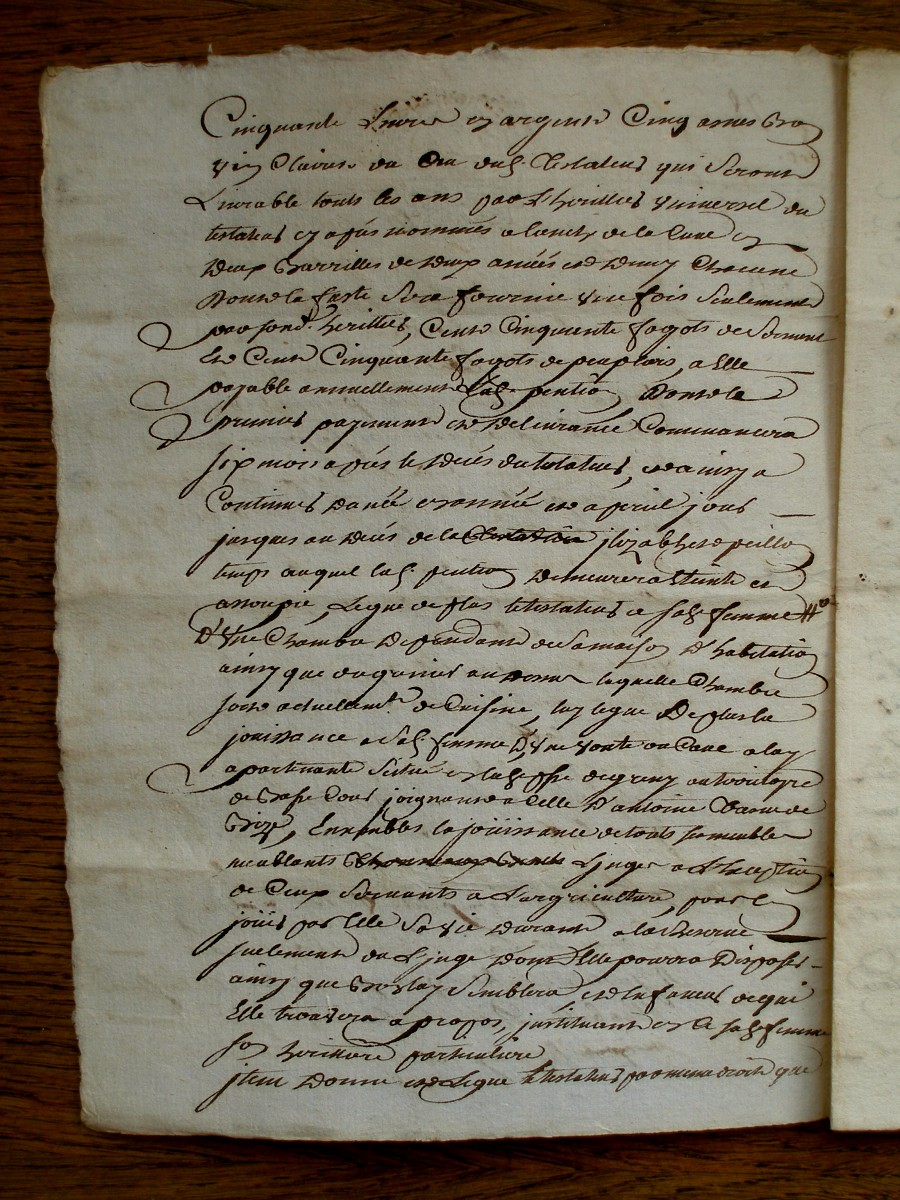 Cinquante Livres en argent Cinq anées bon
vin Clairet du Cru dud. Testateur qui seront
Livrable touts les ans par L'heritier universel du
testateur cy apés nommés a lanche de la Cuve en
deux Barrilles de deux anées et demy Chacune
dont la futte sera fournie une fois seulement
par sond. heritier, Cent Cinquante fagots de Serment
et Cent Cinquante fagots de peupliers, a Elle
payable annuellement lad. pention dont le
premier payement et delivrance Commancera
six mois apés le déces du testateur, et ainsy a
Continuer d'anée en année et a pareil jour
jusques au déces de la jlizabhet peillon
temps auquel lad. pention demeurera Eteinte et
assoupie, Legue de plus le testateur a sad. femme #
D'une Chambre Dependant de sa maison d'habitation
ainsy que du grenier au dessus laquelle Chambre
sert actuellemt. de Cuisine, luy legue De plus la
jouissance a sad. femme, D'une voute ou Cave a luy
apartenante Scitué en lad. au territoire
de joignant a Celle D'antoine
Ensembles la joüissance de touts ses meubles
meublants Linges a L'exception
de Ceux servants a L'argriculture, pour en
joüir par Elle sa vie durant a la Reserve
seulement du Linge dont Elle pourra Disposer
ainsy que bon luy semblera et en faveur de qui
Elle trouvera a propos, jnstituant en ce sad. femme
son heritiere particuliere
jtem donne et Legue le testateur par meme droit que